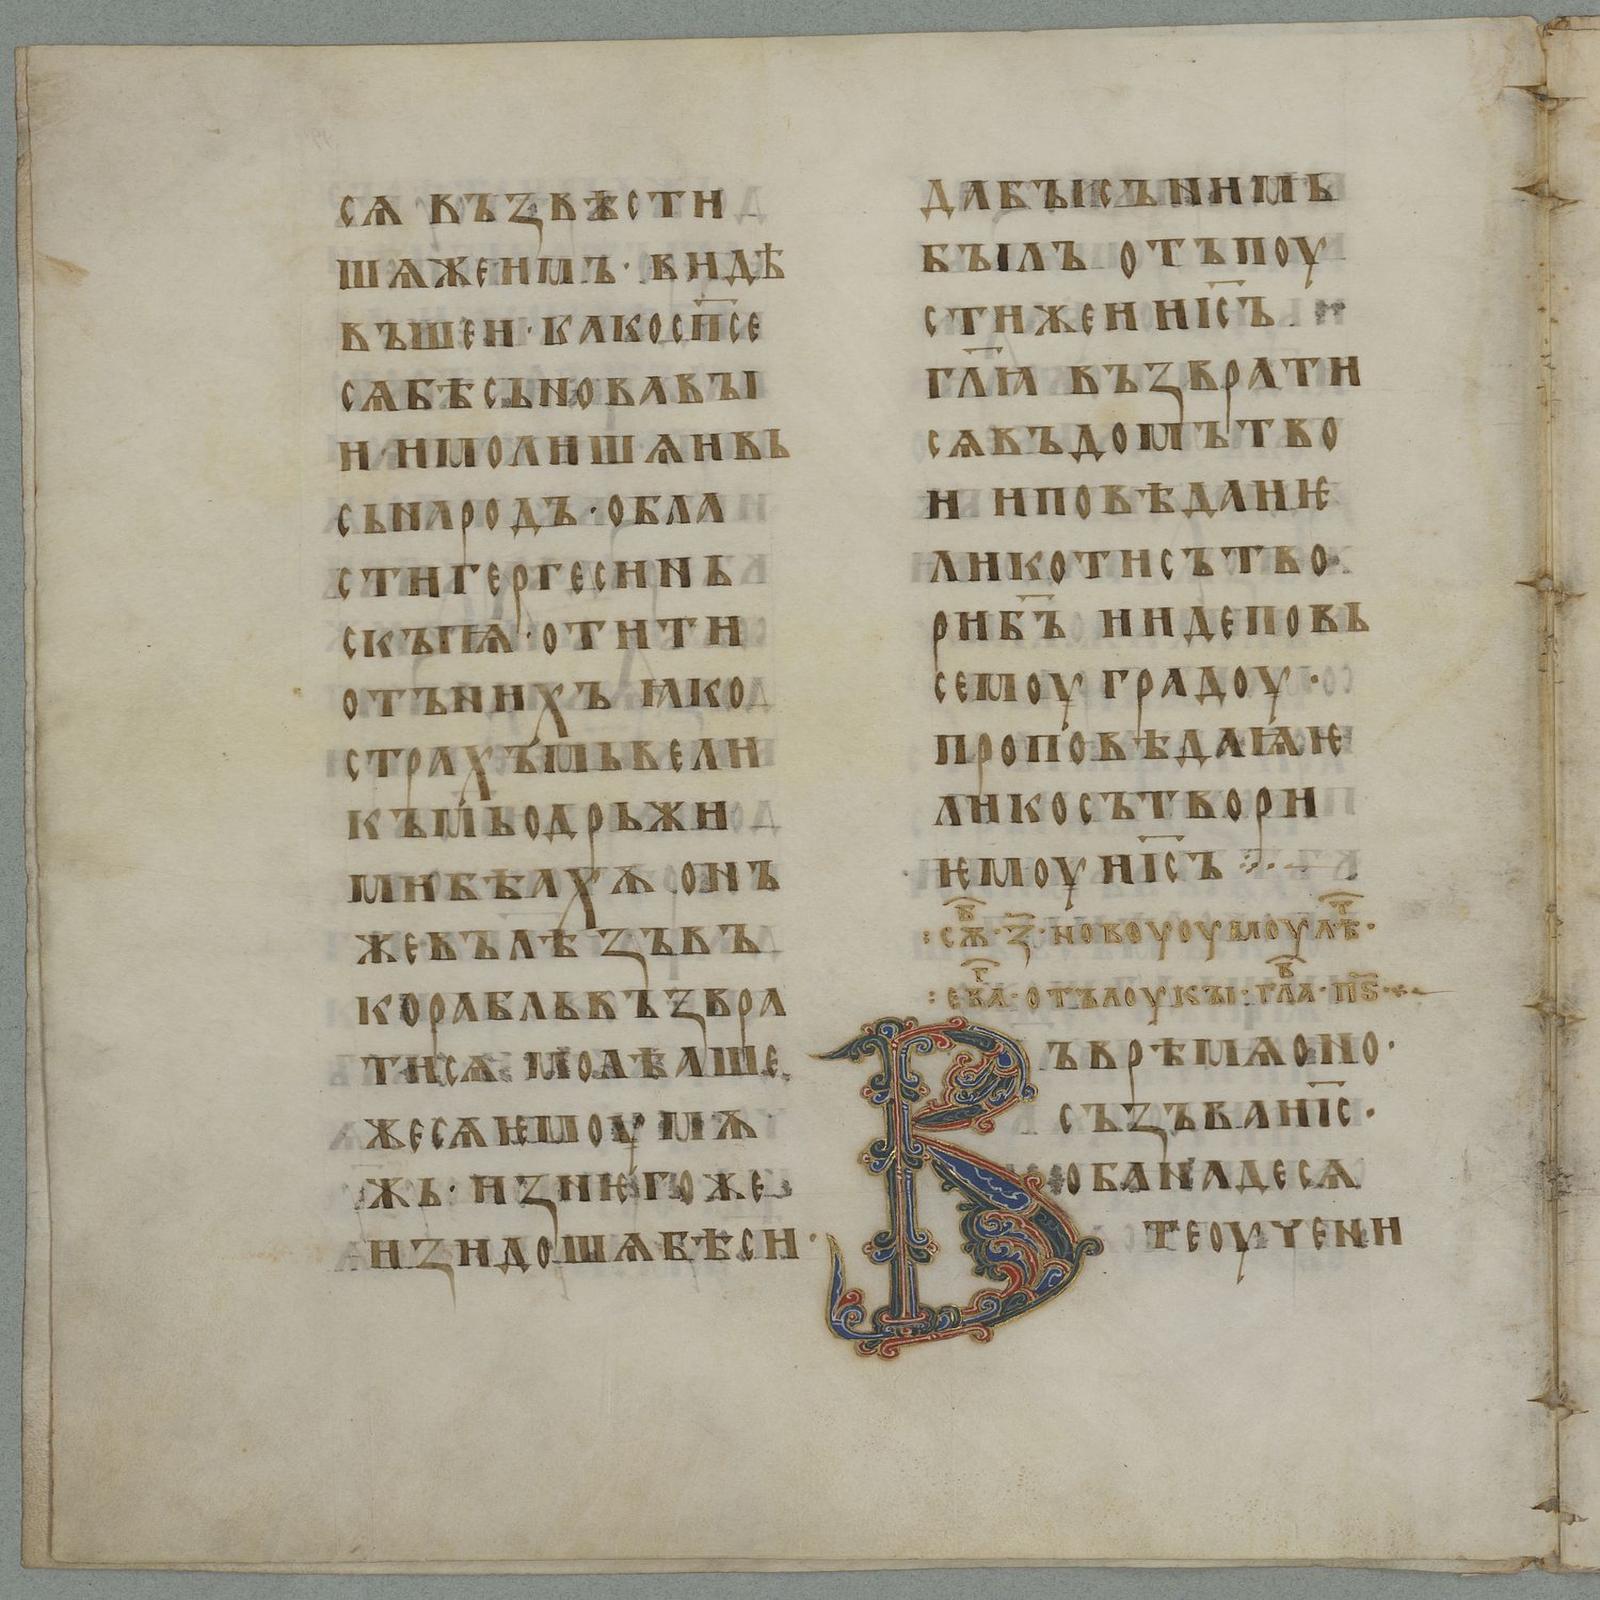 сѧ възвѣсти
шѧжеимъ· видѣ
въшеи· како сп҃се
сѧ бѣсьновавꙑ
и· и молишѧ и вь
сь народъ· обла
сти гергесиньⷩ
скꙑѩ· отити
отъ нихъ ꙗко
страхъмь вели
къмь одрьжи
ми бѣахѫ онъ
же вълѣзъ въ
корабль възвра
ти сѧ· молѣаше
же сѧ ѥмоу мѫ
жь· из него же
изидошѧ бѣси·
да бꙑ съ нимь
бꙑлъ отъпоу
сти же и и҃съ
гл҃ѧ възврати
сѧ въ домъ тво
и и повѣдаи ѥ
лико ти сътво
ри б҃ъ и иде по вь
семоу градоу·
проповѣдаѩ ѥ
лико сътвори
ѥмоу и҃съ
:сѫⷠ· з҃· новоуоумоу лѣⷮ·
:еваⷢ· отъ лоукꙑ· глаⷡ· п҃ѕ·
Въ врѣмѧ оно·
съзъва и҃с·
оба на десѧ
те оучени